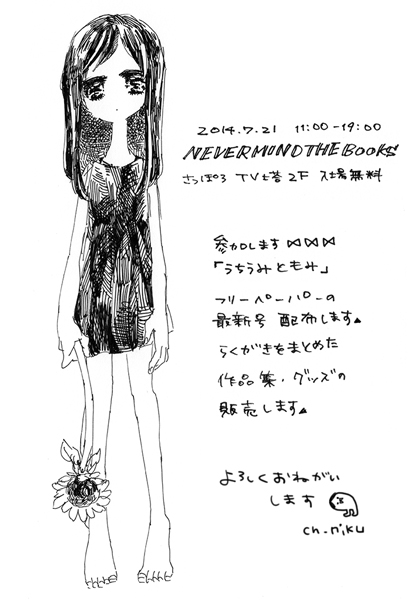 2014.7.21 11:00-19:00
NEVER MIND THE BOOKS
さっぽろ TV塔 2F 入場無料
参加します ⋈⋈⋈
「うちうみともみ」
フリーペーパーの
最新号 配布します。
らくがきをまとめた
作品集・グッズの
販売します。
よろしくおねがい
します
ch_niku